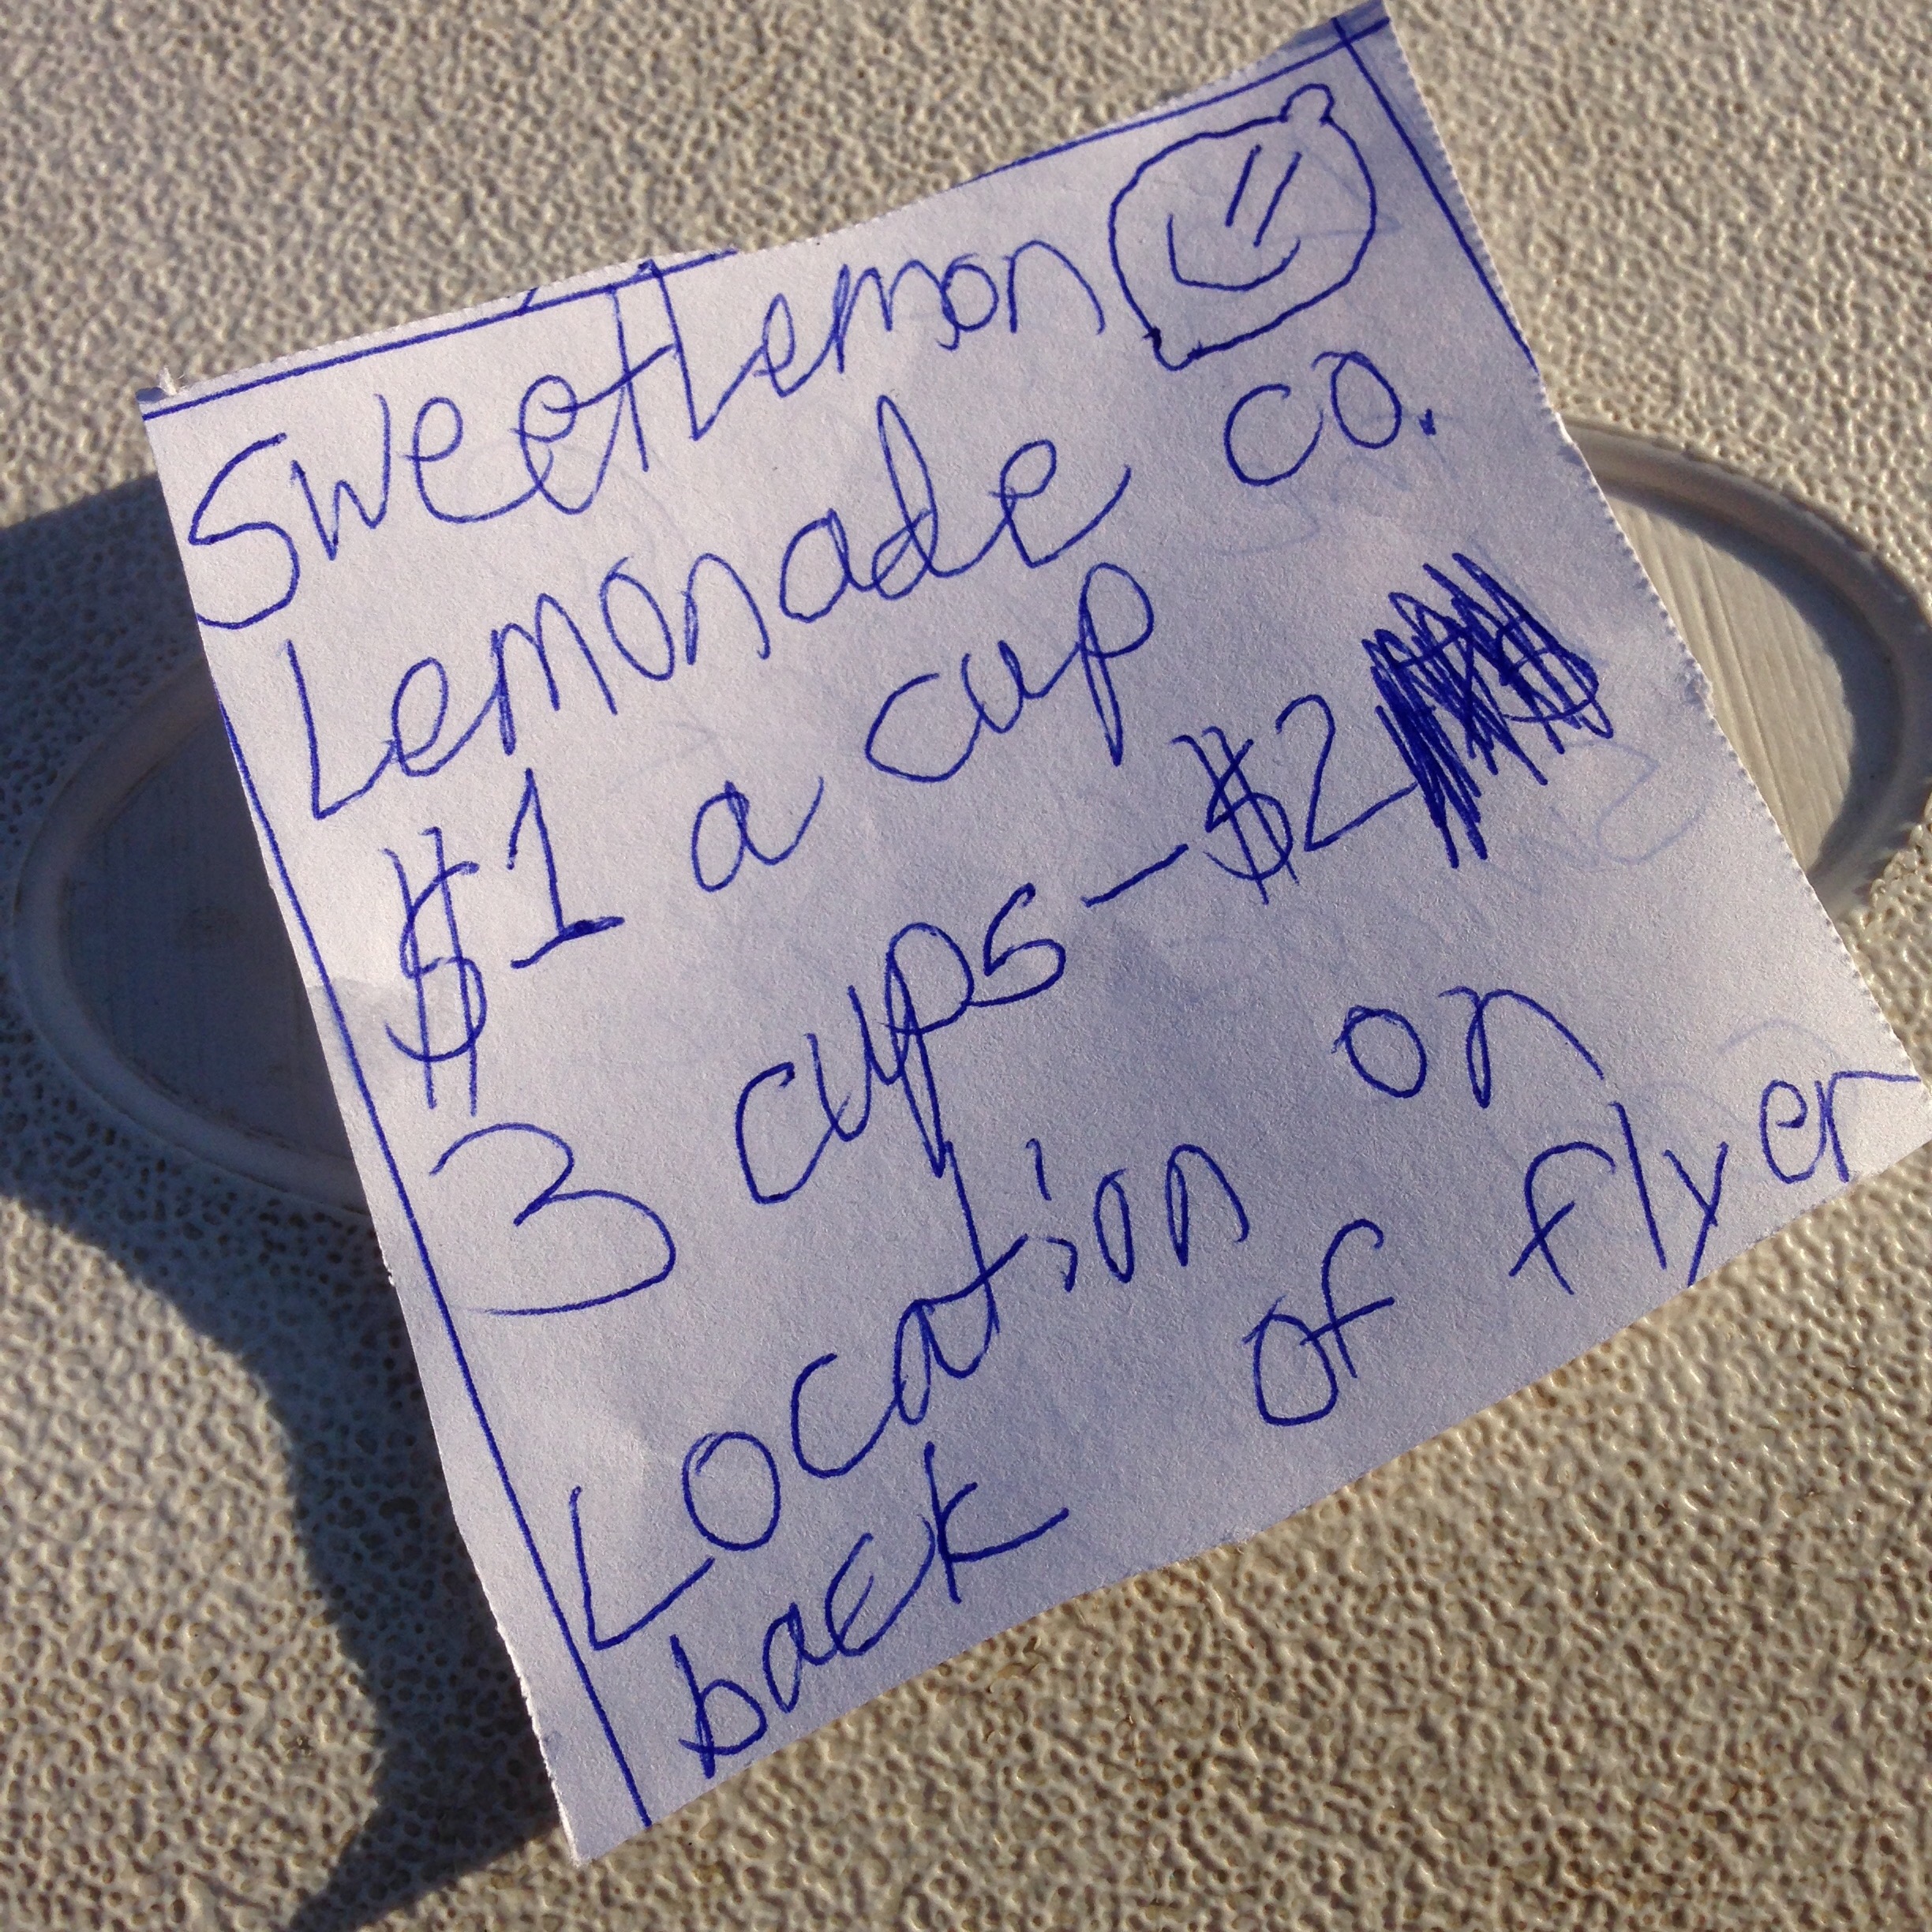 Sweet Lemon
Lemonade co.
$1 a cup
3 cups - $2
Location on
back of flyer